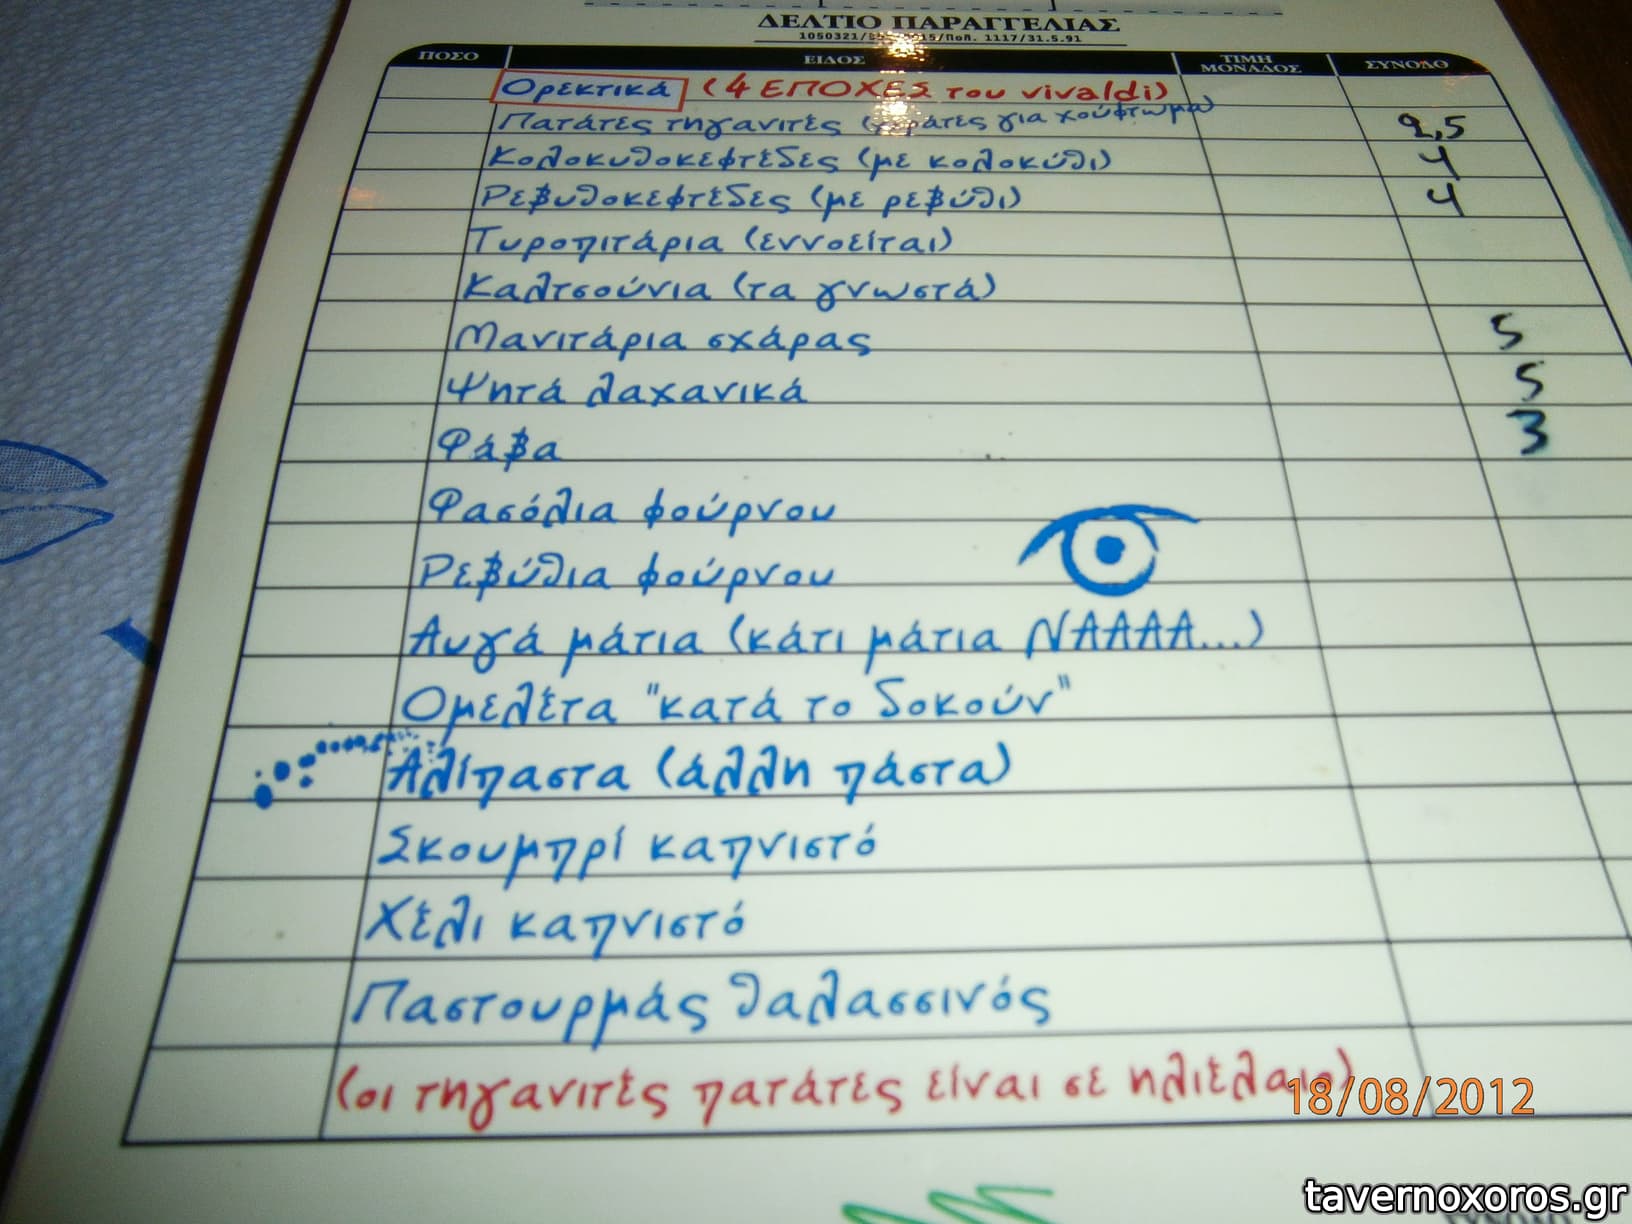 ΔΕΛΤΙΟ ΠΑΡΑΓΓΕΛΙΑΣ
1117/31.5.91
ΠΟΣΟ ΕΙΔΟΣ ΤΙΜΗ ΜΟΝΑΔΟΣ ΣΥΝΟΛΟ
Ορεκτικά (4 ΕΠΟΧΕΣ του vivaldi)
Πατάτες τηγανιτές για χούφτωμα) 2,5
Κολοκυθοκεφτέδες (με κολοκύθι) 4
Ρεβυθοκεφτέδες (με ρεβύθι) 4
Τυροπιτάρια (εννοείται)
Καλτσούνια (τα γνωστά)
Μανιτάρια σχάρας 5
Ψητά λαχανικά 5
Φάβα 3
Φασόλια φούρνου
Ρεβύθια φούρνου
Αυγά μάτια (κάτι μάτια ΝΑΑΑΑ...)
Ομελέτα "κατά το δοκούν"
Αλίπαστα (άλλη πάστα)
Σκουμπρί καπνιστό
Χέλι καπνιστό
Παστουρμάς θαλασσινός
(οι τηγανιτές πατάτες είναι σε ηλιέλαιο)
18/08/2012
tavernoxoros.gr